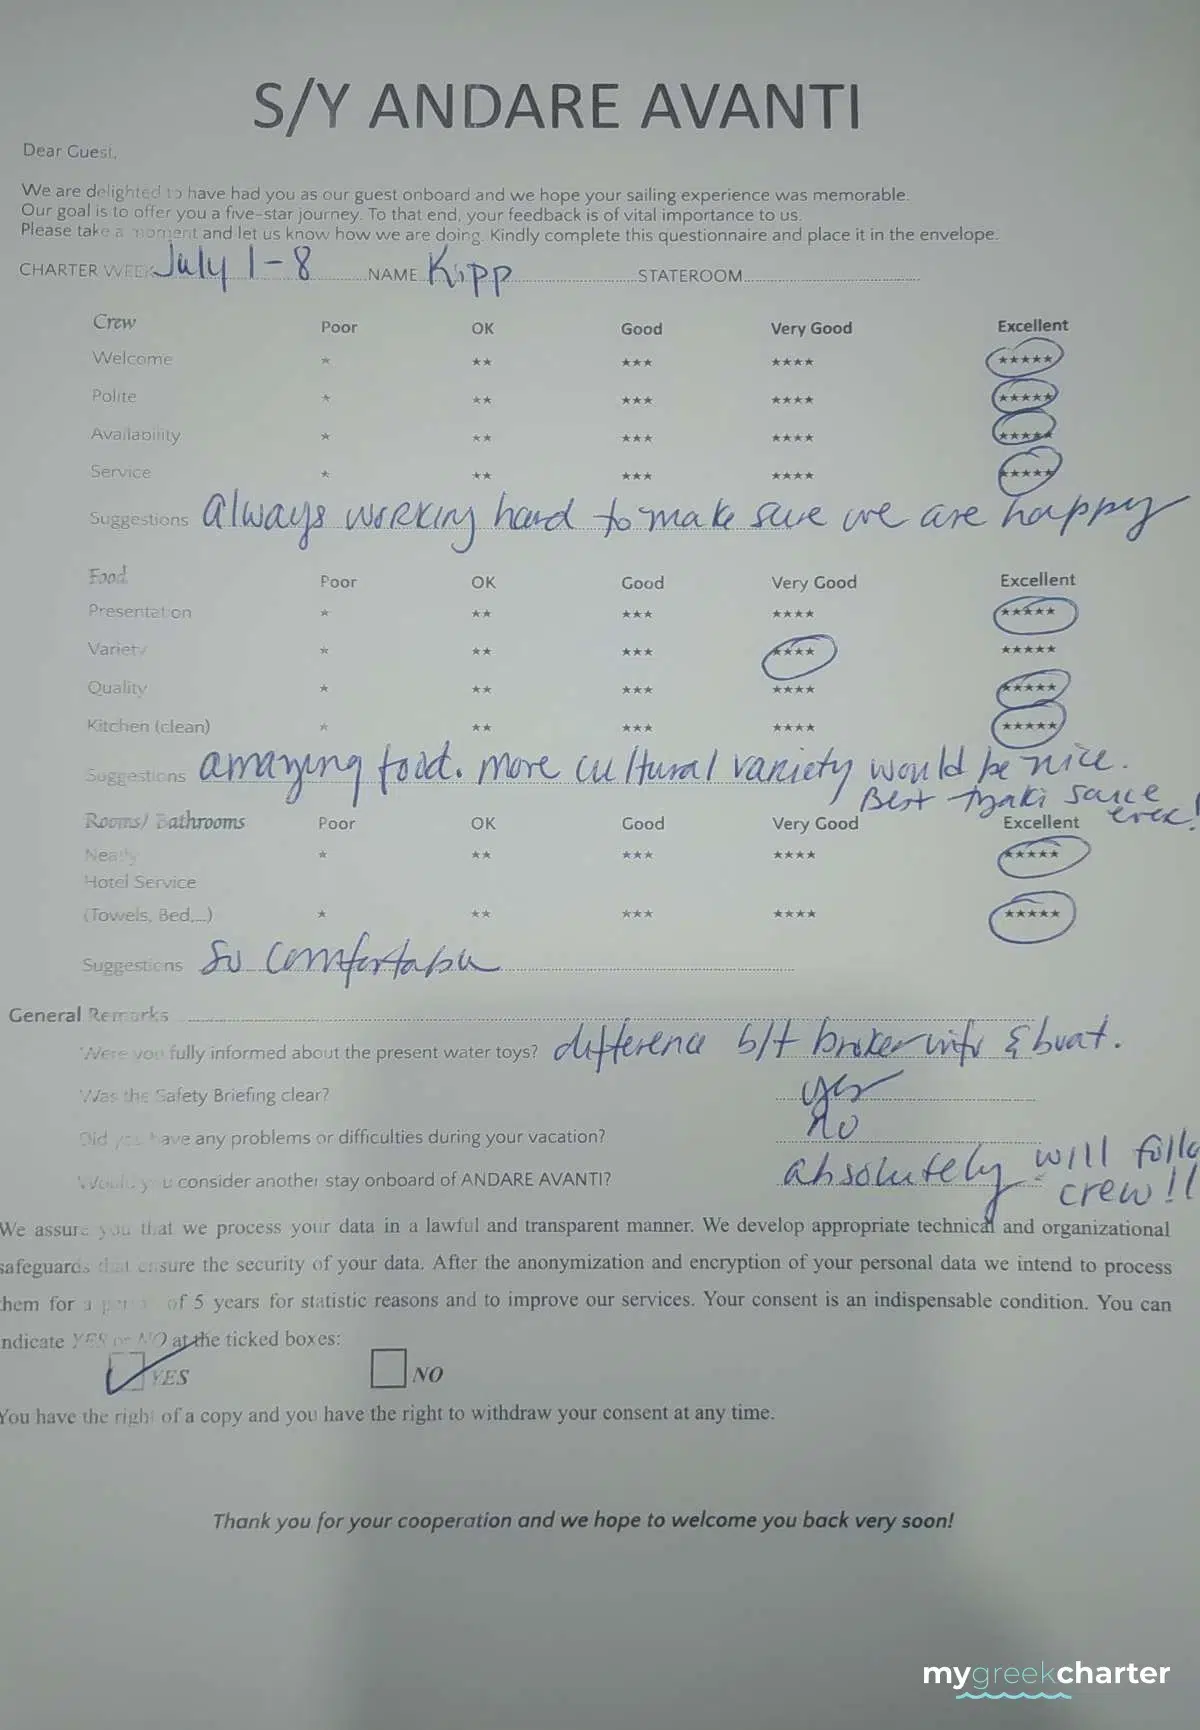 S/Y ANDARE AVANTI
Dear Guest,
We are delighted to have had you as our guest onboard and we hope your sailing experience was memorable.
Our goal is to offer you a five-star journey. To that end, your feedback is of vital importance to us.
Please take a moment and let us know how we are doing. Kindly complete this questionnaire and place it in the envelope.
CHARTER WEEK July 1-8 NAME Kipp STATEROOM
Crew Poor OK Good Very Good Excellent
Welcome * ** *** **** *****
Polite * ** *** **** *****
Availability * ** *** **** *****
Service * ** *** **** *****
Suggestions always working hard to make sure we are happy
Food Poor OK Good Very Good Excellent
Presentation * ** *** **** *****
Variety * ** *** **** *****
Quality * ** *** **** *****
Kitchen (clean) * ** *** **** *****
Suggestions amazing food. more cultural variety would be nice.
Best tzaki sauce ever!
Rooms/ Bathrooms Poor OK Good Very Good Excellent
Neatly * ** *** **** *****
Hotel Service
(Towels, Bed,...) * ** *** **** *****
Suggestions so comfortable
General Remarks
Were you fully informed about the present water toys? difference b/t broker info & boat.
Was the Safety Briefing clear? yes
Did you have any problems or difficulties during your vacation? no
Would you consider another stay onboard of ANDARE AVANTI? absolutely will follo
crew!!
We assure you that we process your data in a lawful and transparent manner. We develop appropriate technical and organizational
safeguards that ensure the security of your data. After the anonymization and encryption of your personal data we intend to process
them for a period of 5 years for statistic reasons and to improve our services. Your consent is an indispensable condition. You can
indicate YES or NO at the ticked boxes:
YES NO
You have the right of a copy and you have the right to withdraw your consent at any time.
Thank you for your cooperation and we hope to welcome you back very soon!
mygreekcharter